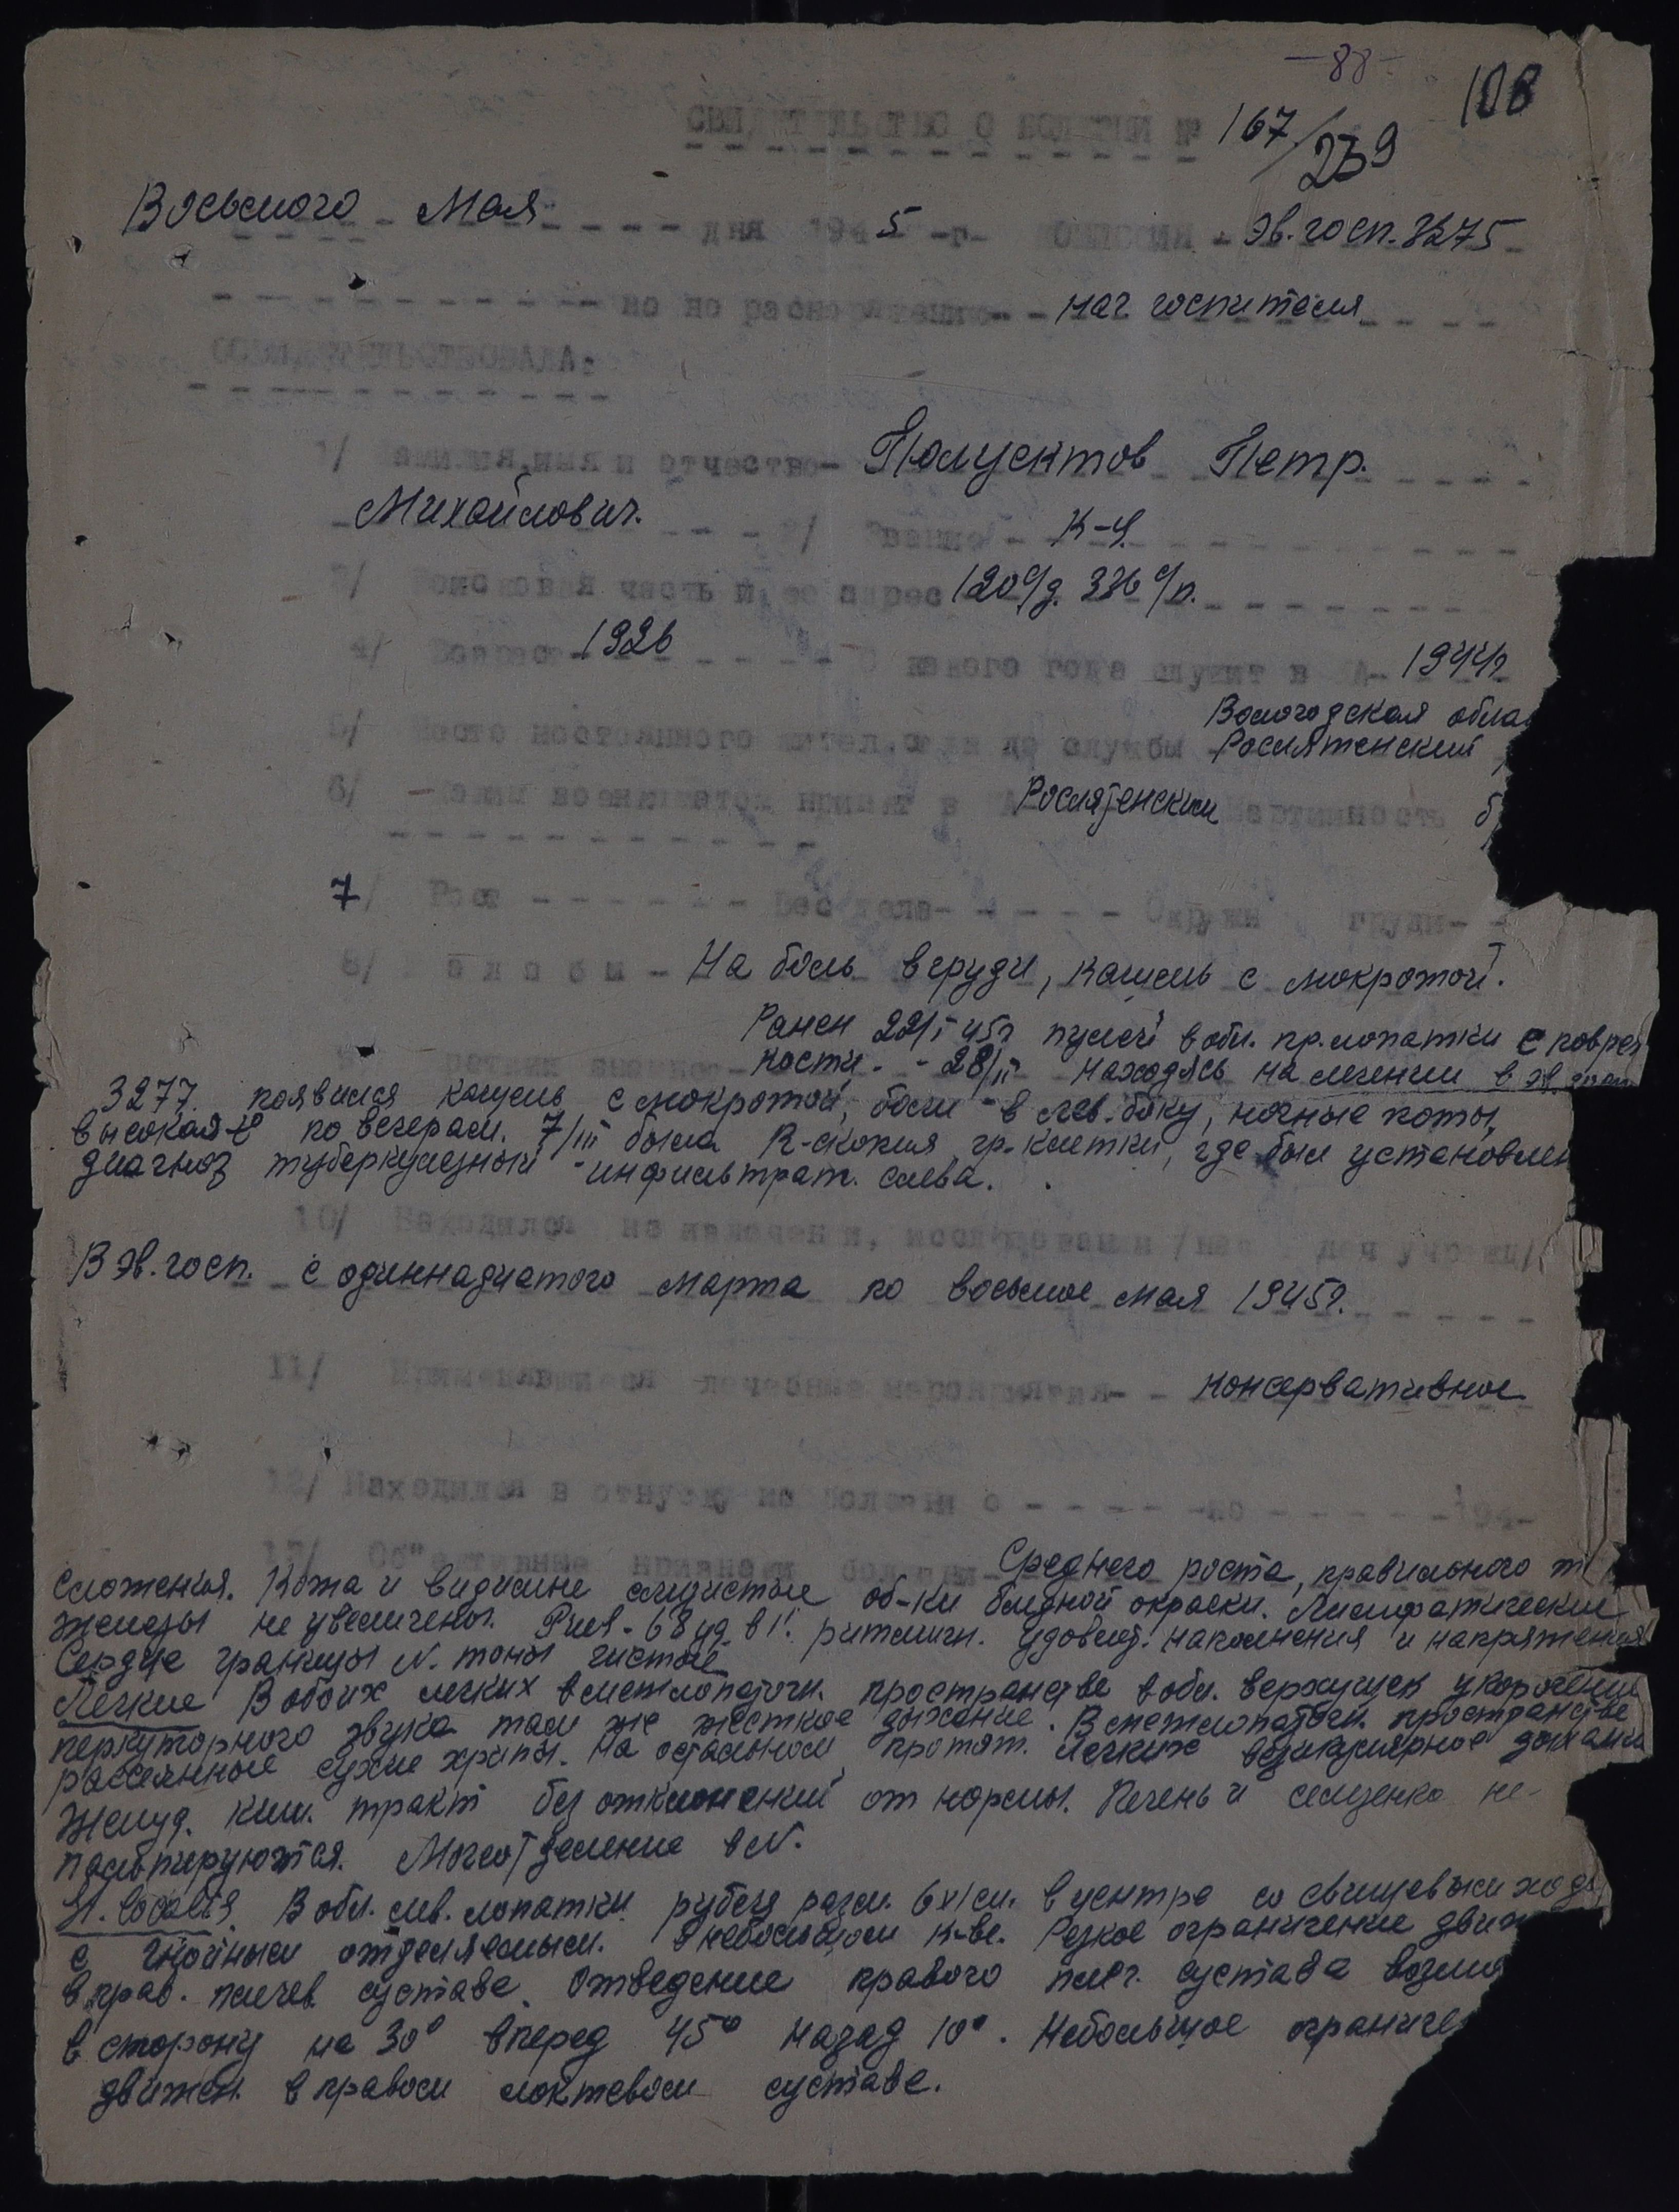 -88-
108
СВИДЕТЕЛЬСТВО О БОЛЕЗНИ № 167/239
Восьмого Мая дня 1945 -г- Комиссия эв. госп. 3275
но по распоряжению нач госпиталя
ОСВИДЕТЕЛЬСТВОВАЛА:
1/ Фамилия, имя и отчество- Полуектов Петр.
Михайлович. 2/ Звание К-ц.
3/ Воисковая часть и ее адрес 120 с/д. 336 с/п.
4/ Возраст 1926 С какого года служит в КА- 1944г
Вологодская обла
5/ Место постоянного жительства до службы Рослятенский
6/ Каким военкоматом призват в КА Рослятенским Партийность б
7/ Рост - - - - - - Вес тела- - - - - Окружн груди-
8/ Жалобы - На боль в груди, кашель с мокротой.
Ранен 22/I 45г пулей в обл. пр. лопатки с повреж
кости. - 28/II находясь на лечении в эв. госп
3277 появился кашель с мокротой, боли в лев. боку, ночные поты,
высокая t° по вечерам. 7/III была R-скопия гр. клетки, где был установлен
диагноз туберкулезный инфильтрат. слева.
10/ Находился на излечении, исследовании /наз для учрежд/
В эв. госп. с одиннадцатого марта по восьмое мая 1945г.
11/ Применявшиеся лечебные мероприятия- - консервативное
12/ Находился в отпуску по болезни с - - - - -по - - - - - -194-
13/ Об"ективные признаки болезни Среднего роста, правильного т
сложения. Кожа и видимые слизистые об-ки бледной окраски. Лимфатические
железы не увеличены. Рulsв - 68 уд в 1'. ритмичн. удовлет. наполнения и напряжения
Сердце границы N. тоны чистые
Легкие В обоих легких в межлопаточн. пространстве в обл. верхушек укорочение
перкуторного звука там же жесткое дыхание. В межлопаточн. пространстве
рассеянные сухие хрипы. На остальном протяж. легких везикулярное дыхание
Желуд. киш. тракт без отклонений от нормы. Печень и селезенка не-
пальпируются. Мочеотделение в N.
St. localis. В обл. лев. лопатки рубец разм. 6х1см. в центре со свищевым ходом
с гнойным отделяемым. в небольшом к-ве. Резкое ограничение движ
в прав. плечев. суставе. Отведение правого плеч. сустава возмо
в сторону на 30° вперед 45° назад 10°. Небольшое ограниче
движен. в правом локтевом суставе.